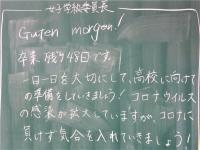 女子学級委員長
Guten morgen!
卒業残り48日です。
一日一日を大切にして、高校に向けて
の準備をしていきましょう! コロナウイルス
の感染が拡大していますが、コロナに
負けず気合を入れていきましょう!